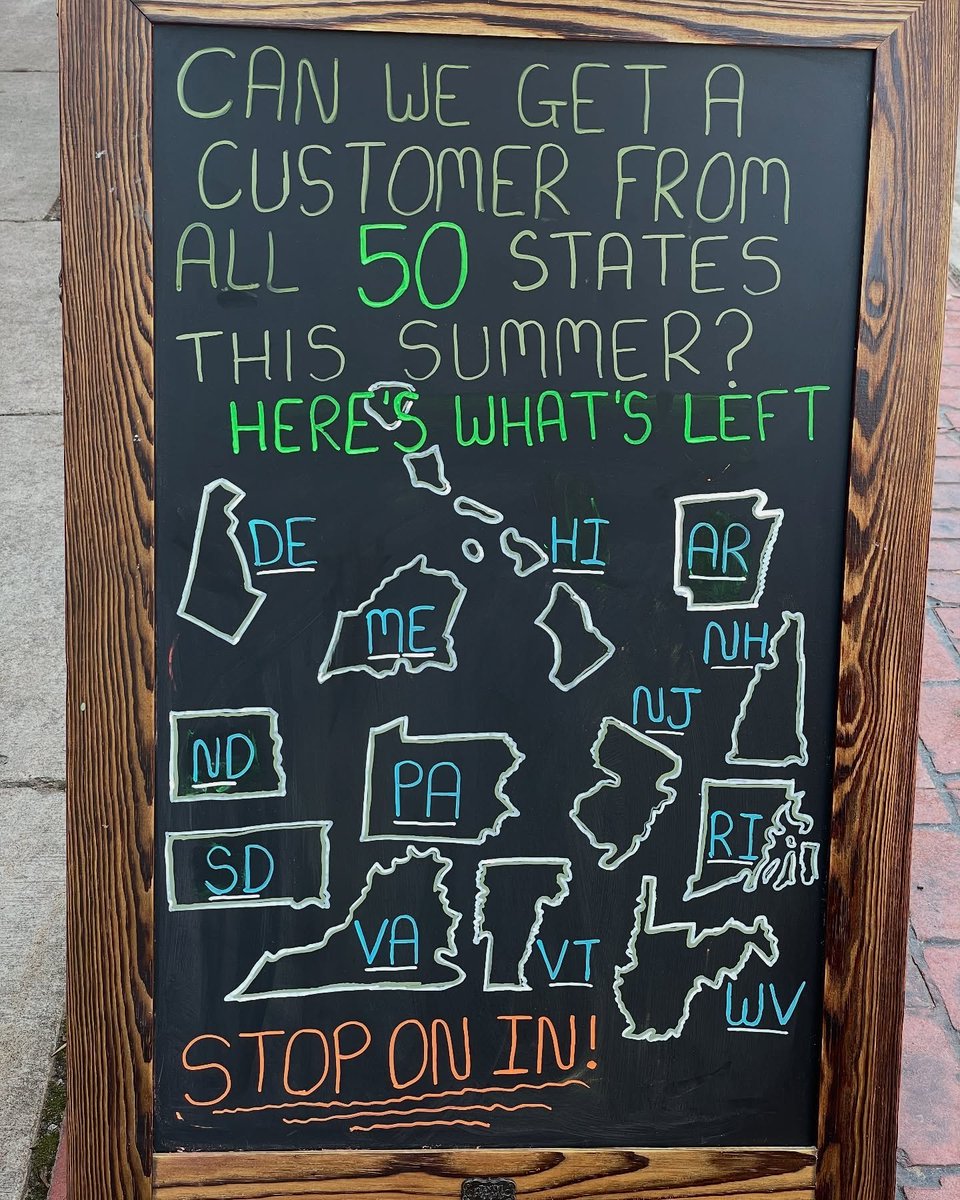 CAN WE GET A
CUSTOMER FROM
ALL 50 STATES
THIS SUMMER?
HERE'S WHAT'S LEFT
DE
HI
AR
ME
NH
NJ
ND
PA
RI
SD
VA
VT
WV
STOP ON IN!